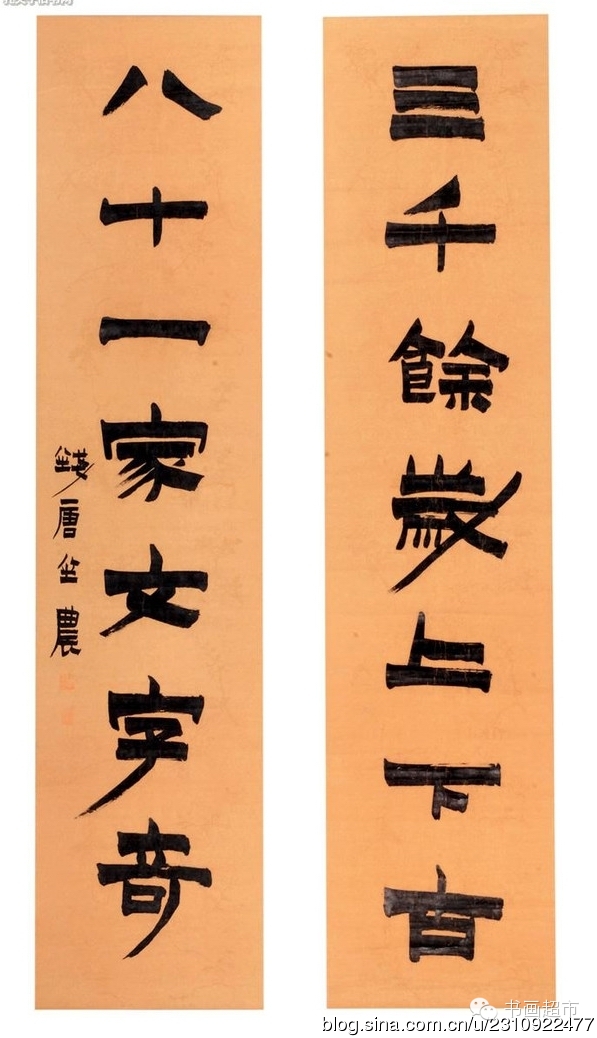 三千餘歲上下古
八十一家文字奇
錢唐金農
书画超市
blog.sina.com.cn/u/2310922477